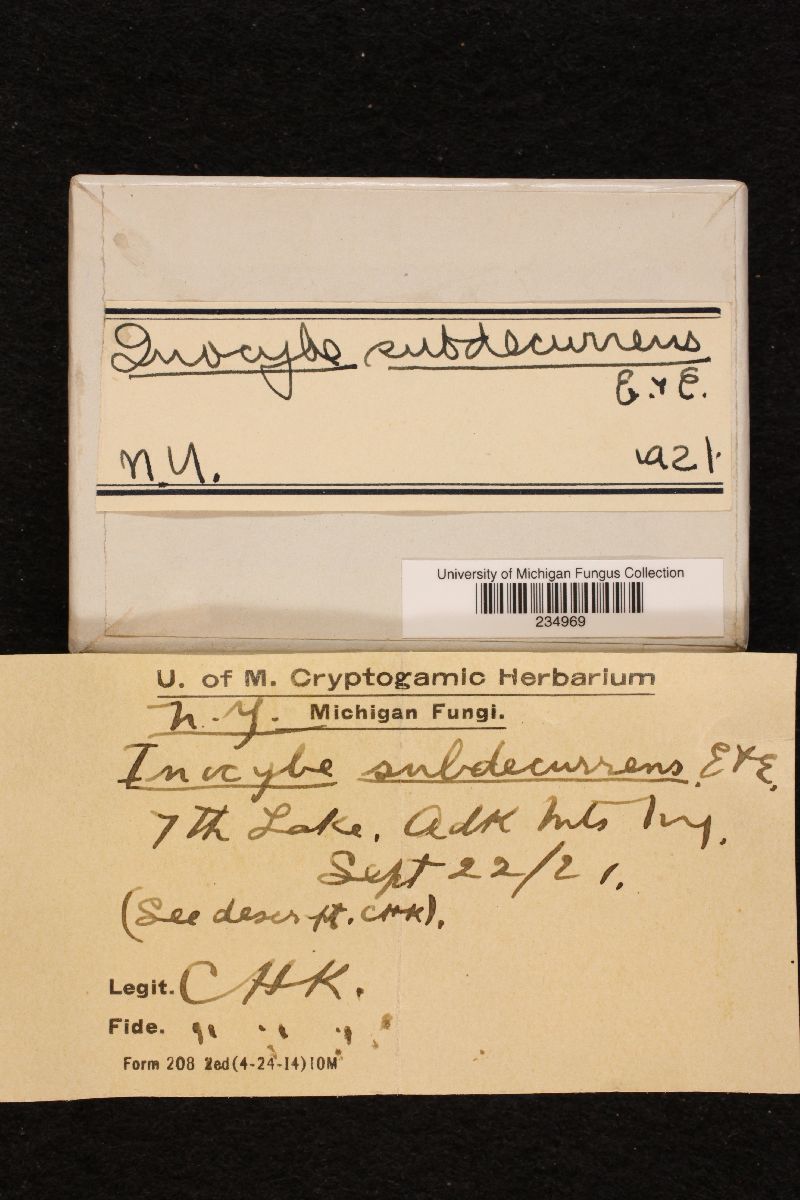 Inocybe subdecurrens
E. & E.
N.Y. 1921.
University of Michigan Fungus Collection
234969
U. of M. Cryptogamic Herbarium
N.Y. Michigan Fungi.
Inocybe subdecurrens. E & E.
7th Lake, Adk Mts N.Y.
Sept 22/21.
(See descript. CHK).
Legit. CHK.
Fide. " " "
Form 208 2ed(4-24-14)10M